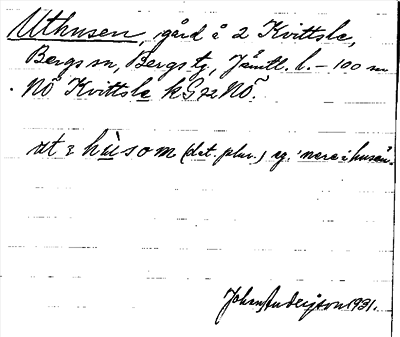 Uthusen, gård å 2 Kvittsle,
Bergs sn, Bergs tg, Jämtl. l. – 100 m
NÖ Kvittsle k G 72 NÖ.
at ɜ hùsom (dat. plur.) eg. 'nere i husen'.
Johan Anderson 1931.